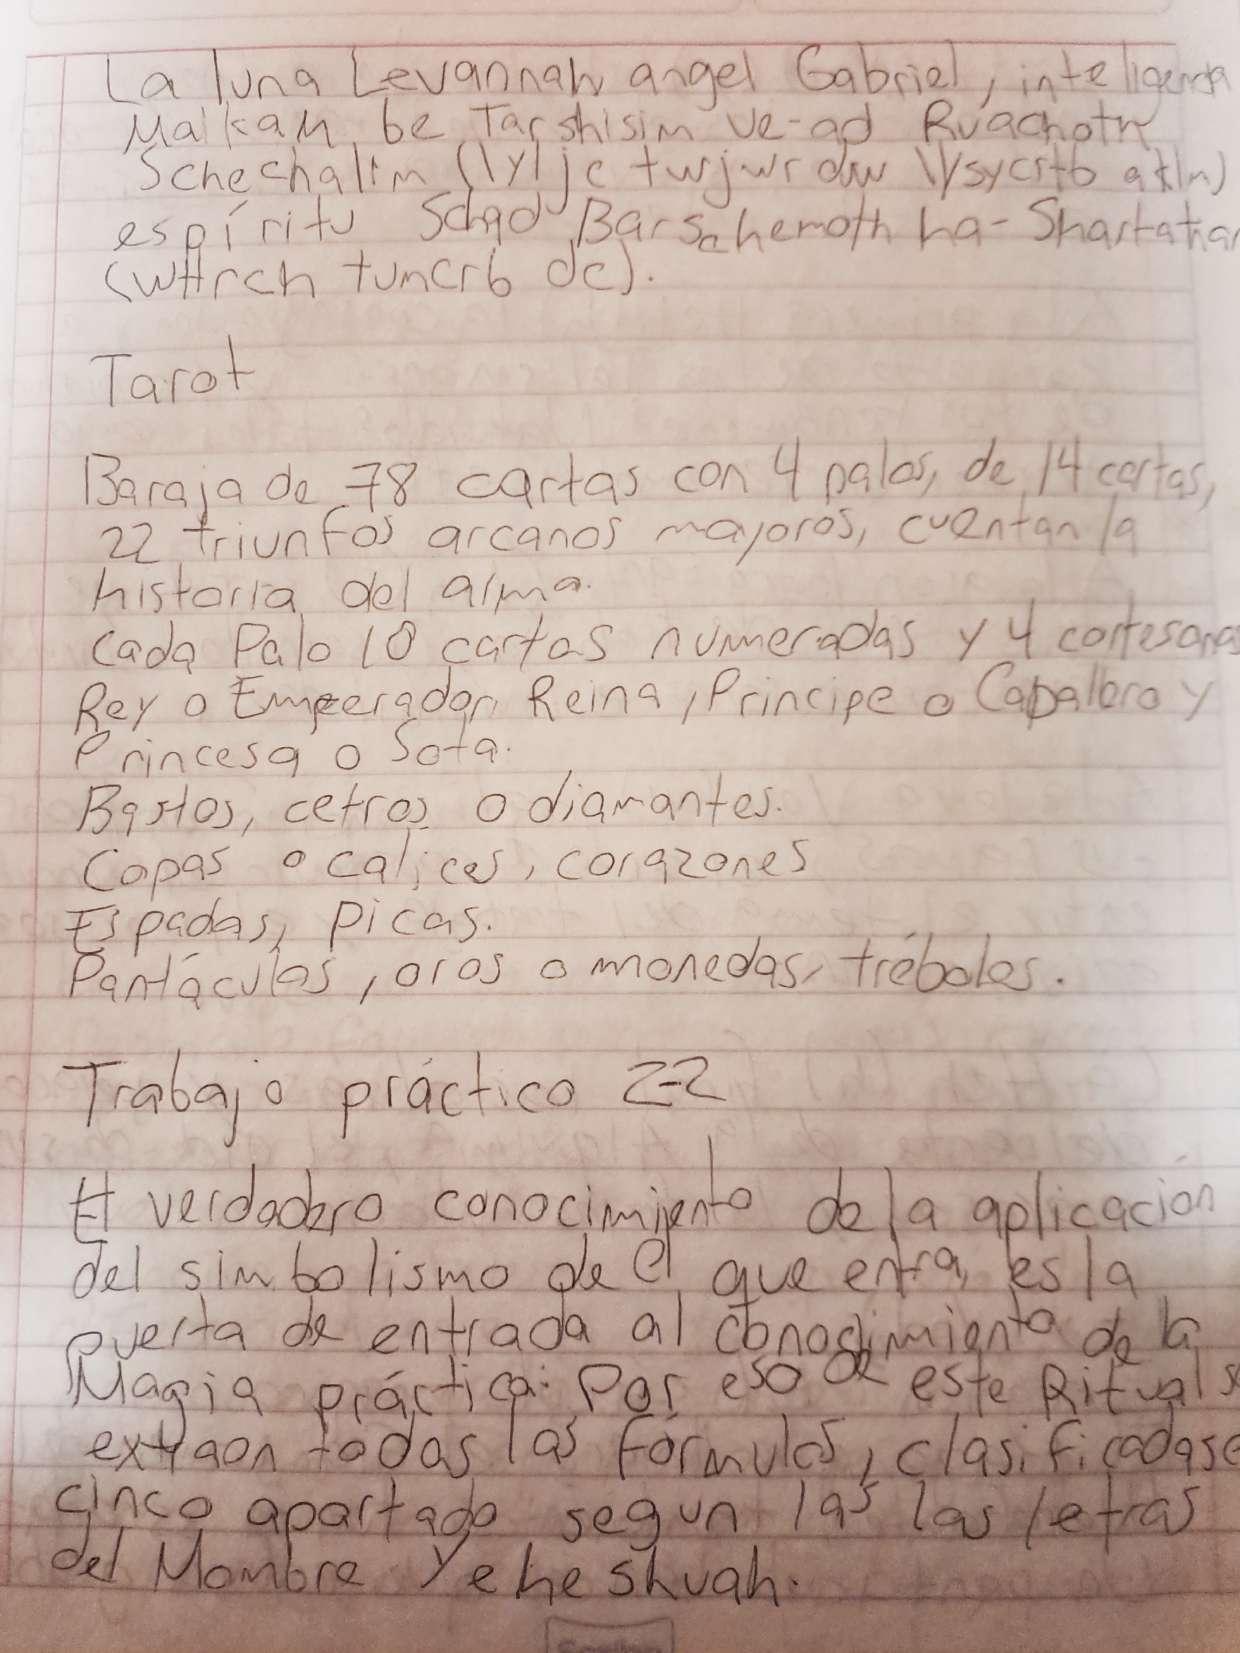 La luna Levannah angel Gabriel, inteligencia
Malkah be Tarshisim ve-ad Ruachoth
Schechalim (lyljc twjwr dw lysycrtb atlm)
espíritu Schad Barschemoth ha-Shartatan
(wHrch tumcrb dc).
Tarot
Baraja de 78 cartas con 4 palos, de 14 cartas,
22 triunfos arcanos mayores, cuentan la
historia del alma.
Cada Palo 10 cartas numeradas y 4 cortesanas
Rey o Emperador, Reina, Principe o Caballero y
Princesa o Sota.
Bastos, cetros o diamantes.
Copas o calices, corazones
Espadas, picas.
Pantáculos, oros o monedas, tréboles.
Trabajo práctico Z-2
El verdadero conocimiento de la aplicación
del simbolismo de el que entra, es la
puerta de entrada al conocimiento de la
Magia práctica. Por eso de este Ritual se
extraen todas las fórmulas, clasificadas e
cinco apartado segun las las letras
del Nombre Yeheshuah.